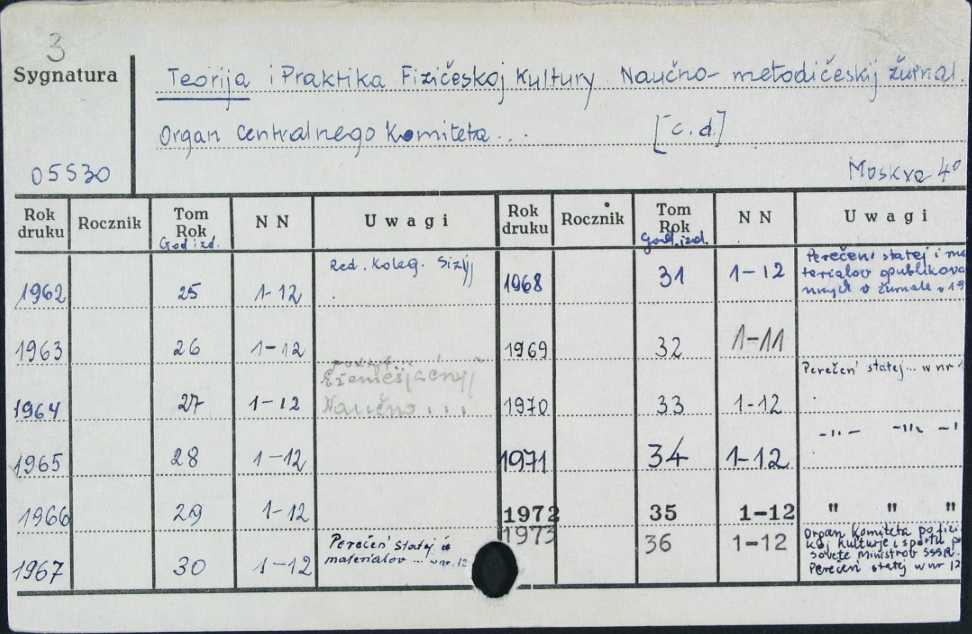 3
Sygnatura
Teorija i Praktika Fizičeskoj Kultury Naučno- metodičeskij žurnal.
Organ Centralnego Komiteta... [c.d.]
05530
Moskva 4°
Rok druku Rocznik Tom Rok God izd. NN Uwagi Rok druku Rocznik Tom Rok God. izd. NN Uwagi
1962 25 1-12 Red. Koleg. 1968 31 1-12 Perečeń statej i ma
terialov opublikova
nnych v žurnale v 19
1963 26 1-12 1969 32 1-11
Ežemesjačnyj
1964 27 1-12 Naučno... 1970 33 1-12 Perečeń statej... w nr 1
1965 28 1-12 1971 34 1-12 -"- -"- -"
1966 29 1-12 1972 35 1-12 " " "
1967 30 1-12 Perečeń statej i
materialov ... w nr. 12
1973 36 1-12 Organ Komiteta po fizi
koj kulture i sportu p
Sovete Ministrob SSSR.
Perečeń statej w nr 12